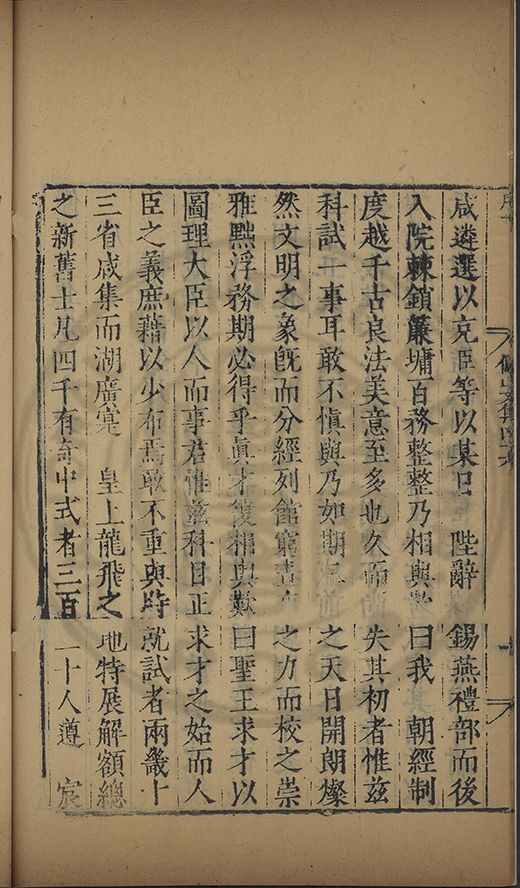 咸遴選以充臣等以某日　陛辭　錫燕禮部而後
入院棘鎖簾墉百務整整乃相與歎曰我　朝經制
度越千古良法美意至多也久而失其初者惟茲
科試一事耳敢不愼與乃如期之天日開朗燦
然文明之象旣而分經列館窮晝之力而校之崇
雅黜浮務期必得乎眞才復相與歎曰聖王求才以
圖理大臣以人而事君惟茲科目正求才之始而人
臣之義庶藉以少布焉敢不重與時就試者兩畿十
三省咸集而湖廣寔　皇上龍飛之地特展解額總
之新舊士凡四千有奇中式者三百二十人遵　宸